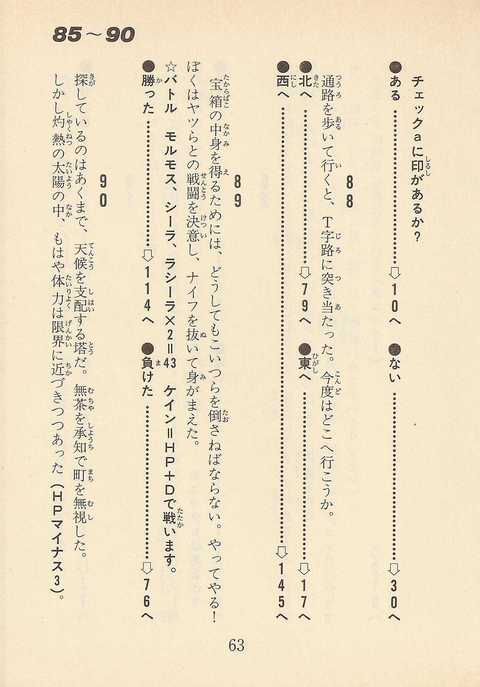 85～90
チェックaに印があるか？
●ある……⇨10へ ●ない……⇨30へ
88
通路を歩いて行くと、T字路に突き当たった。今度はどこへ行こうか。
●北へ……⇨79へ ●東へ……⇨17へ
●西へ……⇨145へ
89
宝箱の中身を得るためには、どうしてもこいつらを倒さねばならない。やってやる！
ぼくはヤツらとの戦闘を決意し、ナイフを抜いて身がまえた。
☆バトル モルモス、シーラ、ラシーラ×2＝43 ケイン＝HP＋Dで戦います。
●勝った……⇨114へ ●負けた……⇨76へ
90
探しているのはあくまで、天候を支配する塔だ。無茶を承知で町を無視した。
しかし灼熱の太陽の中、もはや体力は限界に近づきつつあった（HPマイナス3）。
63